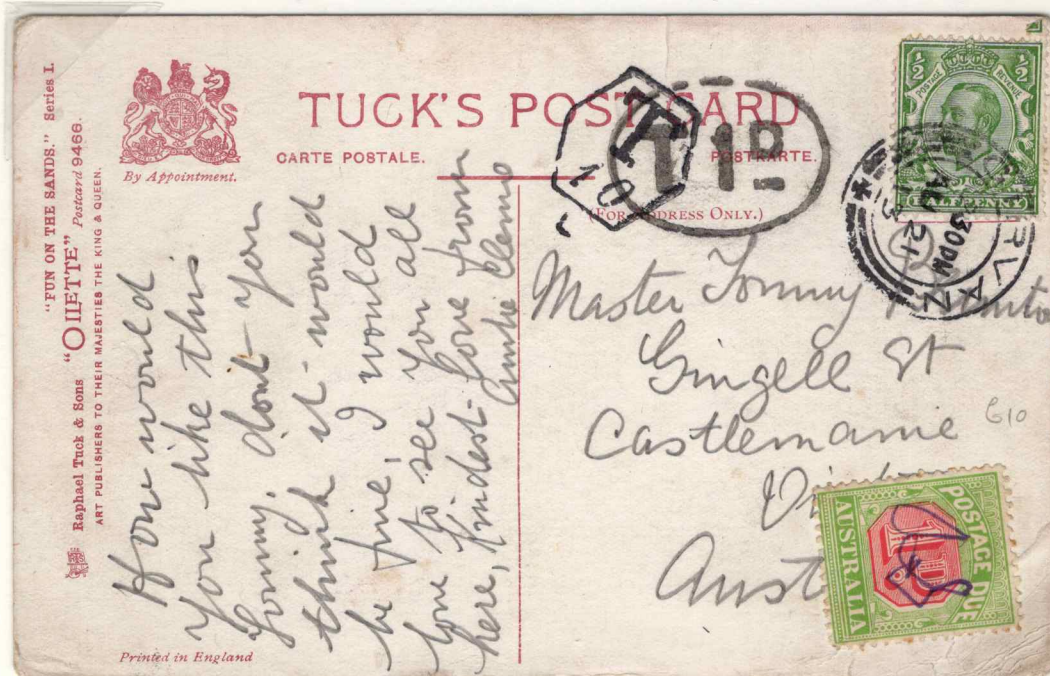 "FUN ON THE SANDS." Series I.
Raphael Tuck & Sons "OILETTE" Postcard 9466.
ART PUBLISHERS TO THEIR MAJESTIES THE KING & QUEEN.
By Appointment.
TUCK'S POST CARD
CARTE POSTALE. POSTKARTE.
(FOR ADDRESS ONLY.)
T
10
T 1D
½ ½
POSTAGE REVENUE
HALFPENNY
RVAN
30PM
21
How would
you like this
Tommy, dont you
think it would
be fine, I would
love to see you all
here, Kindest love from
Auntie
Master Tommy
Gingell St
Castlemaine
Aust
G10
POSTAGE DUE
1D
AUSTRALIA
Printed in England